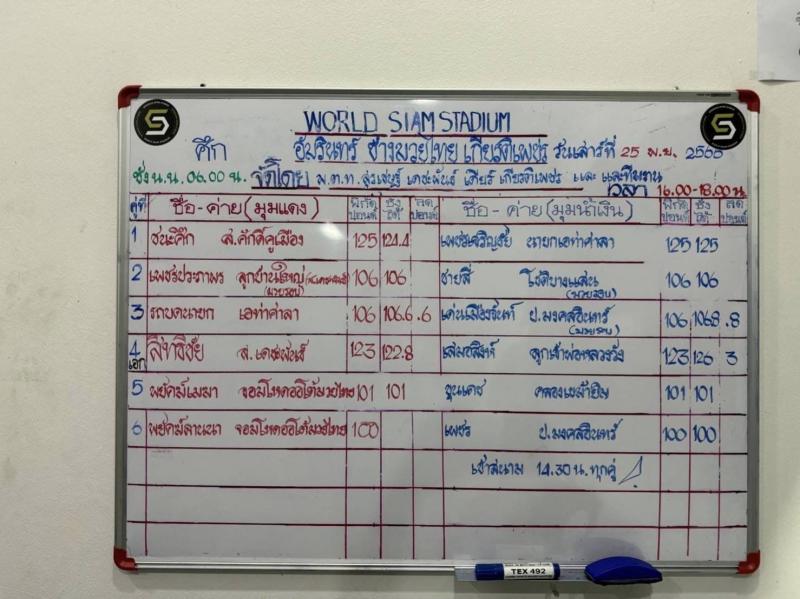 WORLD SIAM STADIUM
ศึก อัมรินทร์ ช้างมวยไทย เกียรติเพชร วันเสาร์ที่ 25 พ.ย. 2566
ชั่ง น.น. 06.00 น. จัดโดย พ.ต.ท. สุรเชษฐ์ เดชะพันธ์ เสี่ยร์ เกียรติเพชร และ และทีมงาน
เวลา 16.00-18.00 น.
คู่ที่ ชื่อ - ค่าย (มุมแดง) พิกัด ปอนด์ ชั่ง ได้ ลด ปอนด์ ชื่อ - ค่าย (มุมน้ำเงิน) พิกัด ปอนด์ ชั่ง ได้ ลด ปอนด์
1 ชนะศึก ส.ศักดิ์คูเมือง 125 124.4 เพชรเจริญชัย นายกเอท่าศาลา 125 125
2 เพชรประภาพร ลูกบ้านใหญ่ (มวยรอบ) 106 106 ชายสี่ โชติบางแสน (มวยรอบ) 106 106
3 รถบดนายก เอท่าศาลา 106 106.6 .6 เด่นเมืองจันท์ ป.มงคลอินทร์ (มวยรอบ) 106 106.8 .8
4 เอก สิทธิชัย ส.เดชะพันธ์ 123 122.8 เสมอสิงห์ ลูกเจ้าพ่อหลวงวัง 123 126 3
5 พยัคฆ์เมฆา จอมโหดออโต้มวยไทย 101 101 ขุนเดช คลองเขม้ายิม 101 101
6 พยัคฆ์ลานนา จอมโหดออโต้มวยไทย 100 เพชร ป.มงคลอินทร์ 100 100
เข้าสนาม 14.30 น. ทุกคู่
TEX 492